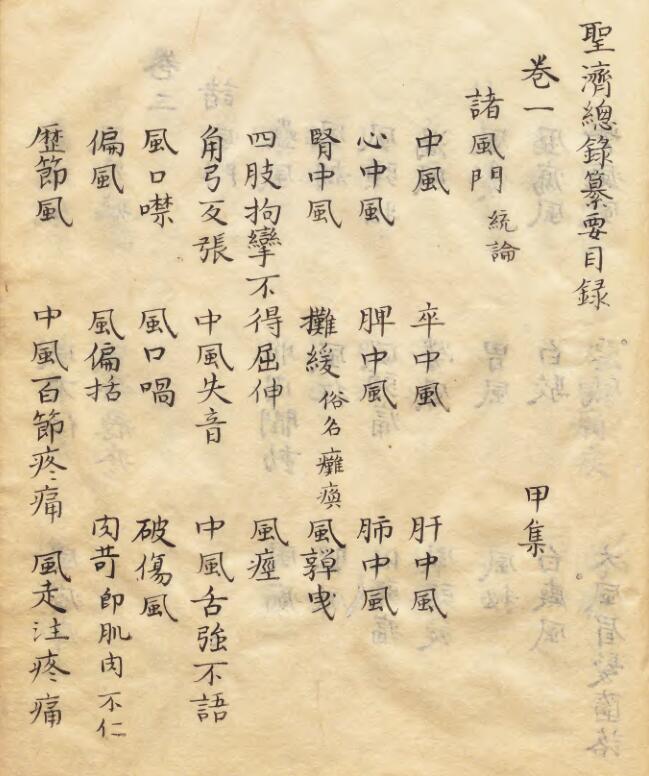 聖濟總錄纂要目録
卷一 甲集
諸風門 統論
中風 卒中風 肝中風
心中風 脾中風 肺中風
腎中風 攤緩 俗名癱瘓 風嚲曳
四肢拘攣不得屈伸 風痙
角弓反張 中風失音 中風舌強不語
風口噤 風口喎 破傷風
偏風 風偏括 肉苛 卽肌肉不仁
歷節風 中風百節疼痛 風走注疼痛